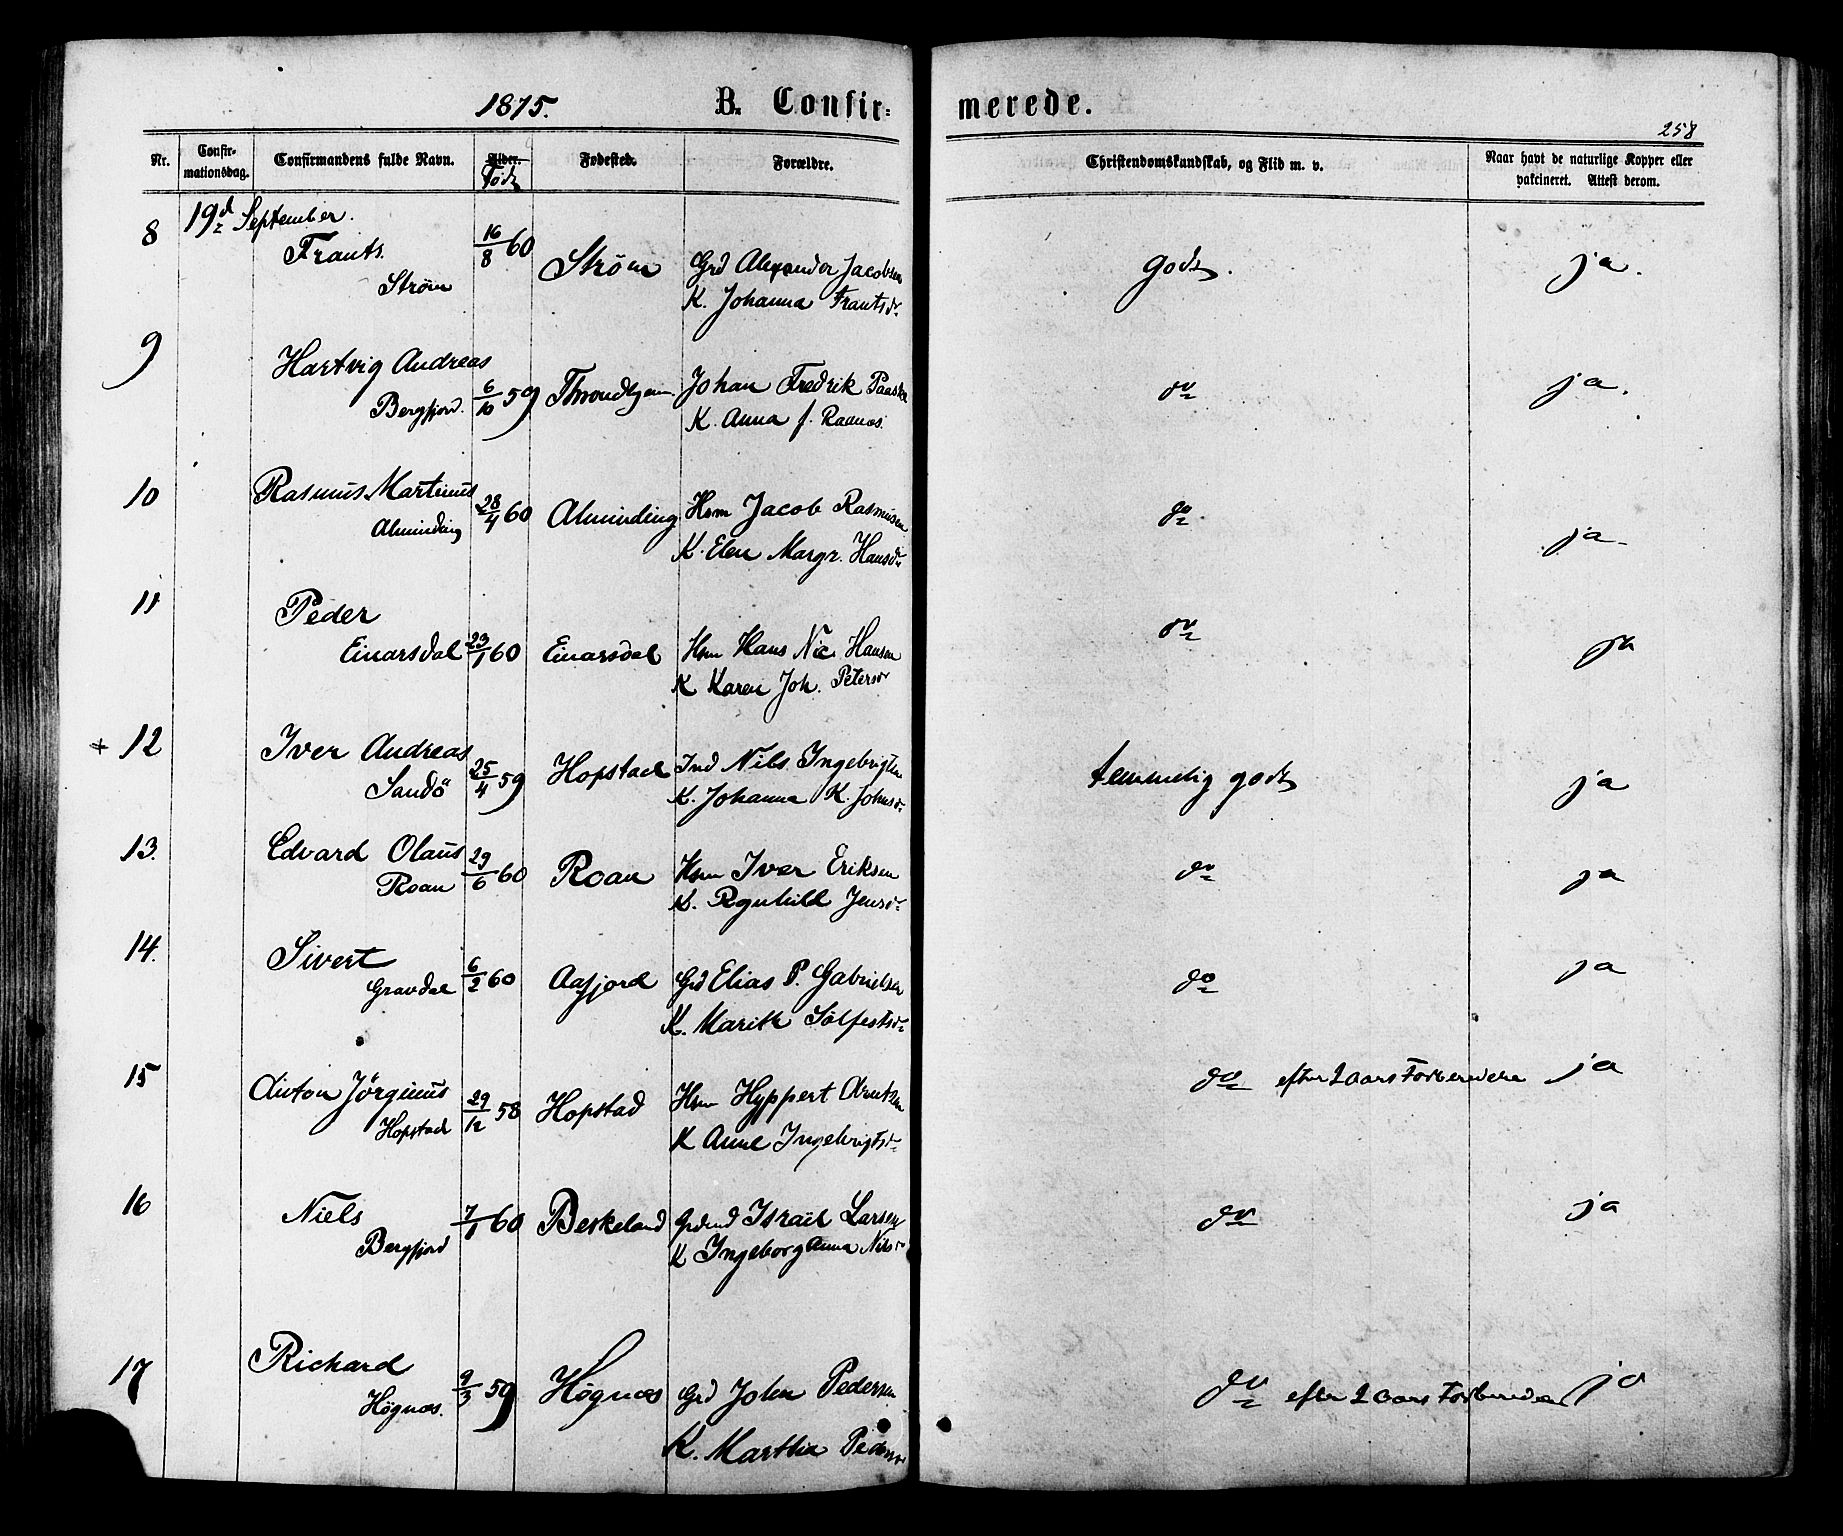 1875. B. Confirmerede.
258
Nr. Confirmationsdag. Confirmandens fulde Navn. Alder. Født Fødested. Forældre. Christendomskundskab, og Flid m. v. Naar havt de naturlige Kopper eller vakcineret. Attest derom.
19d September.
8 Frants 16/8 60 Strøm Grd Alexander Jacobsen godt. ja.
Strøm K. Johanna Frantsdr
9 Hartvig Andreas 6/10 59 Throndhjem Johan Fredrik Paaske do ja.
Bergfjord. K. Anna f. Raanæs.
10 Rasmus Martinus 28/4 60 Alminding Hsm Jacob Rasmusen do ja
Alminding K. Elen Margr. Hansdr
11 Peder 23/1 60 Einarsdal Hsm Hans Nic Hansen do ja
Einarsdal K Karen Joh. Petersdr
+ 12 Iver Andreas 25/4 59 Hopstad Ind Nils Ingebrigtsen temmelig godt ja
Sandö K. Johanna K. Johnsdr
13. Edvard Olaus 29/6 60 Roan Hsm Iver Eriksen do ja
Roan K. Regnhild Jensdr
14. Sivert 6/2 60 Aafjord Grd Elias P. Gabrielsen do ja
Gravdal K. Marith Sølfestsdr
15 Anton Jørginus 29/12 58 Hopstad Hsm Hyppert Arntzen do efter 2 aars Forberedelse ja
Hopstad K Anne Ingebrigtsdr
16 Niels 7/1 60 Beskeland Israël Larsen do ja
Bergfjord K Ingeborg Anna Nilsdr
17 Richard 9/3 59 Høgnæs Grd John Pedersen do efter 2 aars Forberedelse ja
Høgnæs. K. Martha Pedersdr